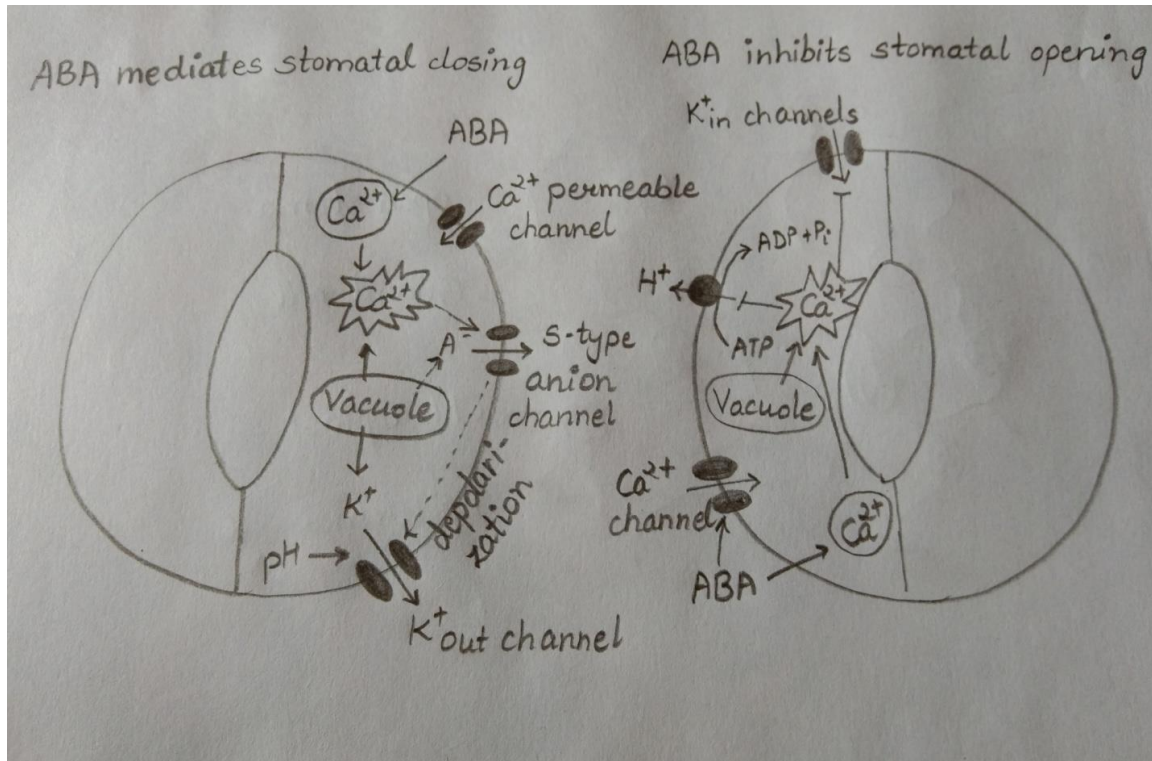 ABA mediates stomatal closing
ABA
Ca²⁺
Ca²⁺ permeable
channel
Ca²⁺
A⁻
S-type
anion
channel
Vacuole
K⁺
depolari-
zation
pH
K⁺out channel
ABA inhibits stomatal opening
K⁺in channels
ADP+Pi
H⁺
Ca²⁺
ATP
Vacuole
Ca²⁺
channel
Ca²⁺
ABA